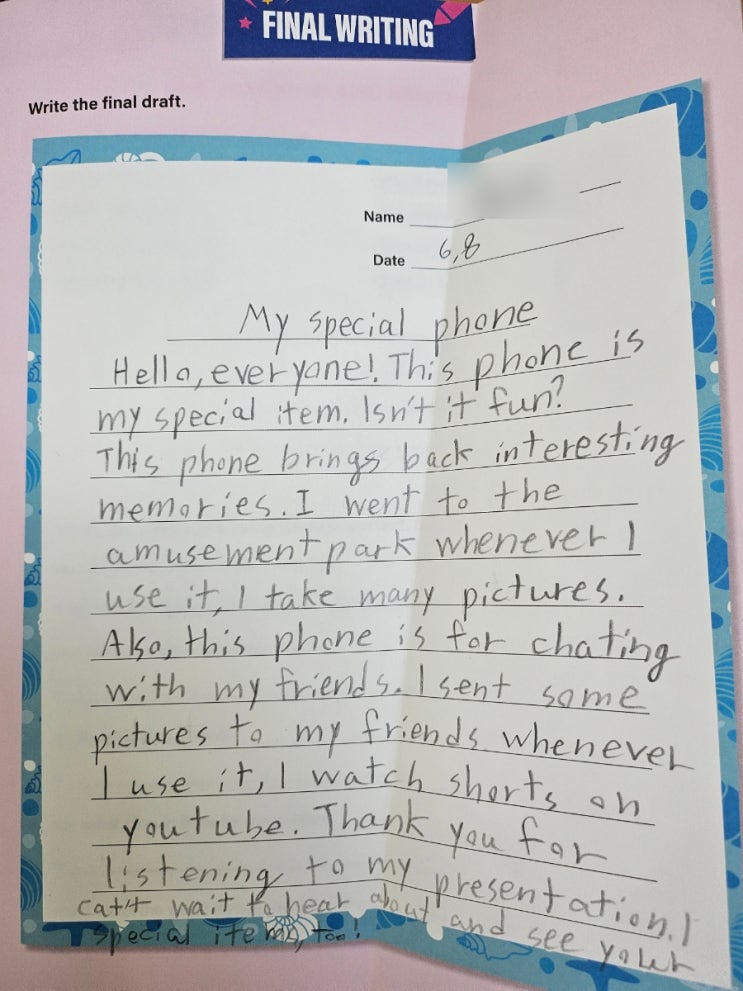 FINAL WRITING
Write the final draft.
Name
Date 6,8
My special phone
Hello, everyone! This phone is
my special item. Isn't it fun?
This phone brings back interesting
memories. I went to the
amusement park whenever I
use it, I take many pictures.
Also, this phone is for chating
with my friends. I sent some
pictures to my friends whenever
I use it, I watch shorts on
youtube. Thank you for
listening to my presentation. I
cat't wait to hear about and see your
special items, too!